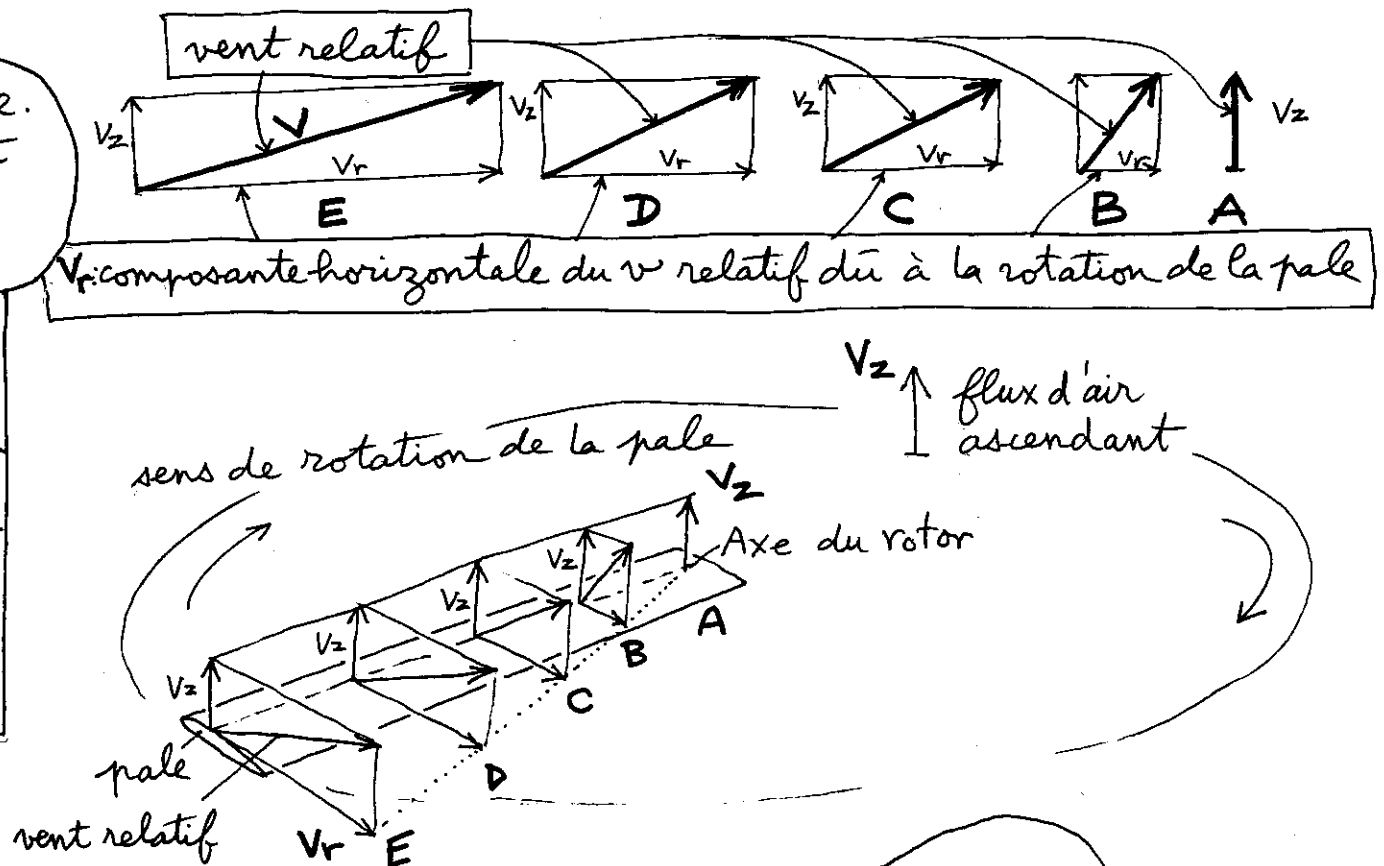 vent relatif
2.
Vz
V
Vr
E
Vz
Vr
D
Vz
Vr
C
Vr
B
Vz
A
Vr: composante horizontale du v relatif dû à la rotation de la pale
Vz
flux d'air
ascendant
sens de rotation de la pale
Vz
Axe du rotor
Vz
Vz
Vz
Vz
A
B
C
D
pale
vent relatif
Vr
E